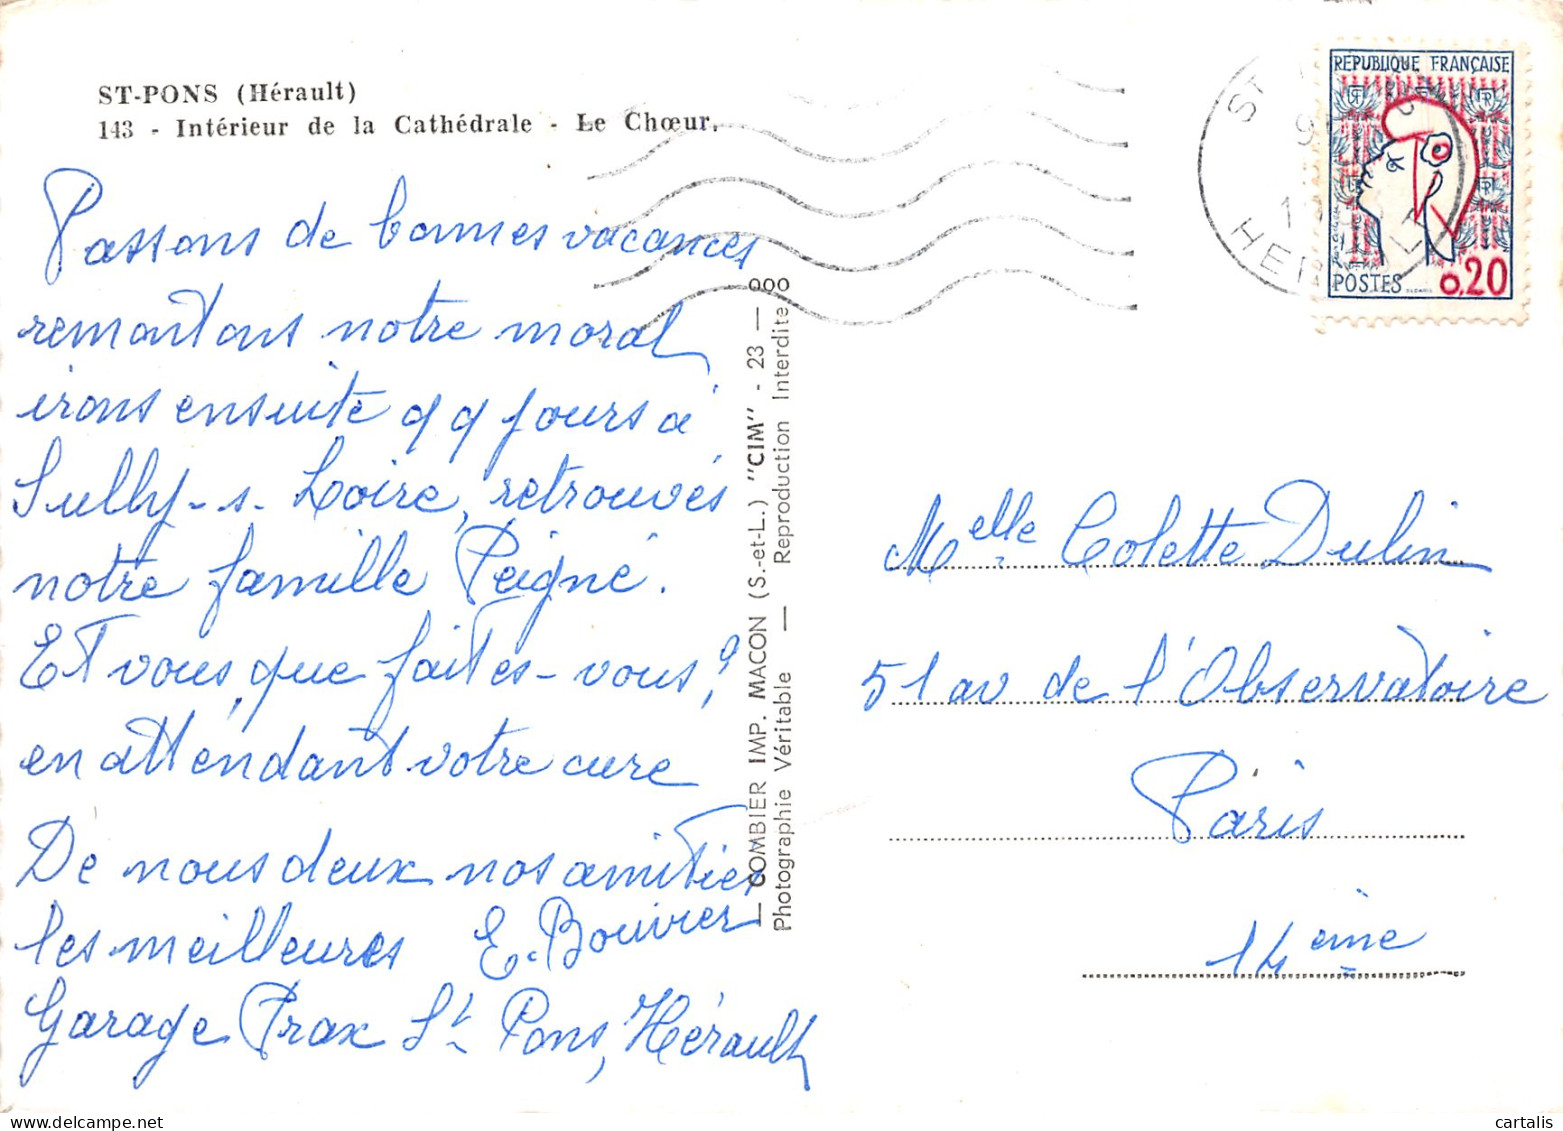 ST-PONS (Hérault)
143 - Intérieur de la Cathédrale - Le Chœur.
Passons de bonnes vacances
remontons notre moral
irons ensuite qq jours à
Sully-s-Loire, retrouvés
notre famille Peigné.
Et vous, que faites-vous ?
en attendant votre cure
De nous deux nos amitiés
les meilleures E. Bouvier
Garage Prax St Pons, Hérault
— COMBIER IMP. MACON (S.-et-L.) "CIM" - 23 — 000
Photographie Véritable — Reproduction Interdite
ST
HERAULT
REPUBLIQUE FRANÇAISE
POSTES
0,20
Melle Colette Dulin
51 av de l'Observatoire
Paris
14ème
cartalis